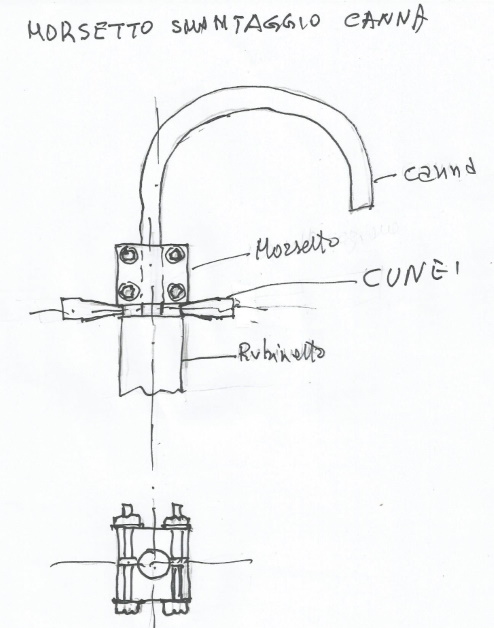 MORSETTO SMONTAGGIO CANNA
canna
Morsetto
CUNEI
Rubinetto